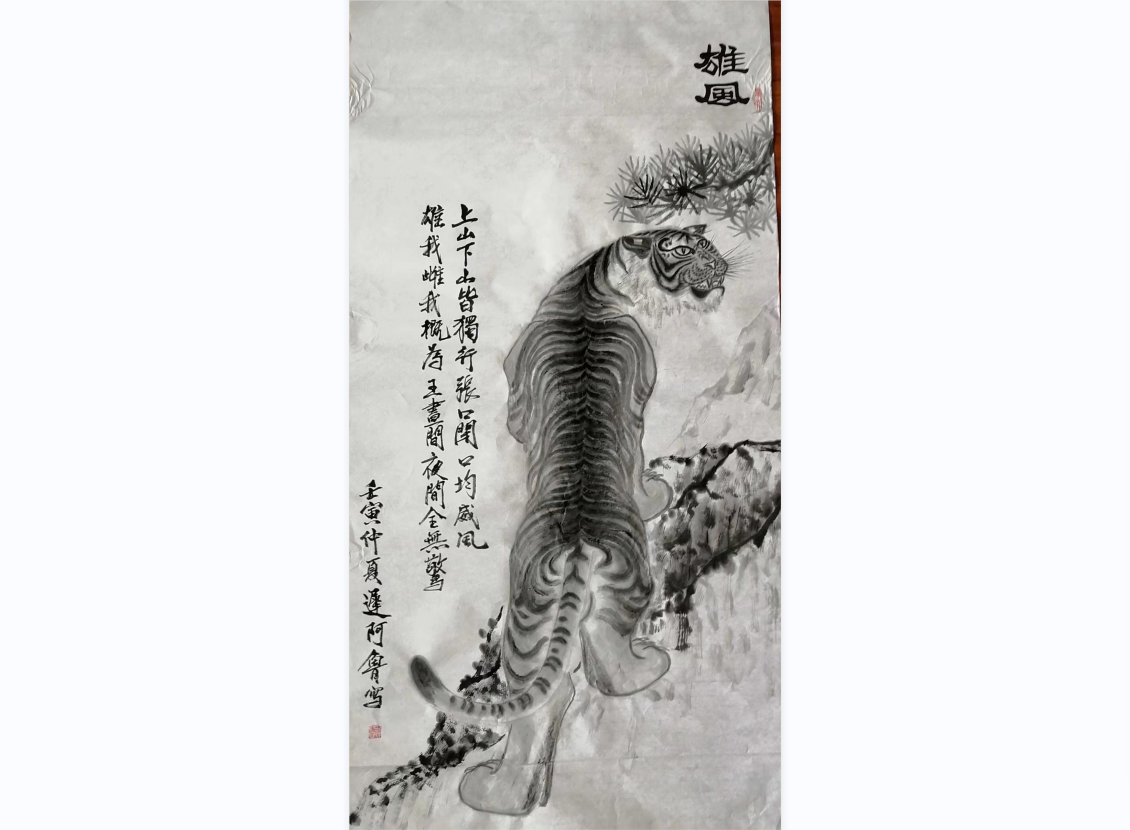 雄風
上山下山皆獨行張口閉口均威风
雄我雌我概為王晝間夜間全無驚
壬寅仲夏遲阿魯写